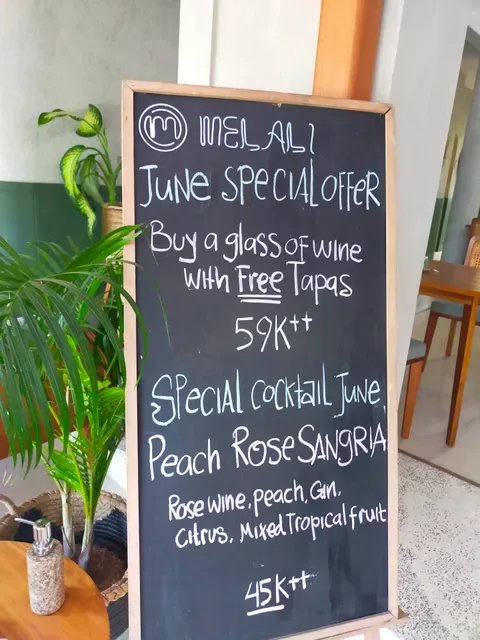 m MELALI
JUNE SPECIAL OFFER
Buy a glass of wine
with Free Tapas
59K++
SPECIAL COCKTAIL JUNE
Peach Rose SANGRIA
Rose wine, peach, Gin,
Citrus, Mixed Tropical fruit
45K++